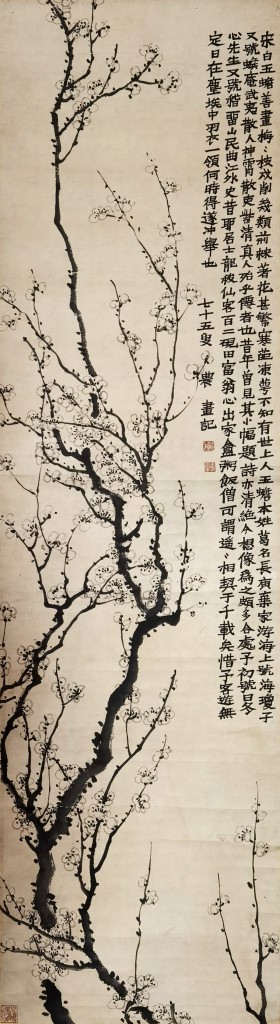 宋白玉蟾善畫梅梅枝戍削幾類荊棘著花甚繁寒葩凍萼不知有世上人玉蟾本姓葛名長庚棄家游海上號海瓊子
又號蠙庵武夷散人神霄散吏紫清真人殆乎僊者也昔年曾見其小幅題詩亦清絕今想像為之頗多合處予初號曰冬
心先生又號稽留山民曲江外史昔耶居士龍梭仙客百二硯田富翁心出家盦粥飯僧可謂遙遙相契于千載矣惜予客遊無
定日在塵埃中羽衣一領何時得遂冲舉也
七十五叟 農 畫記